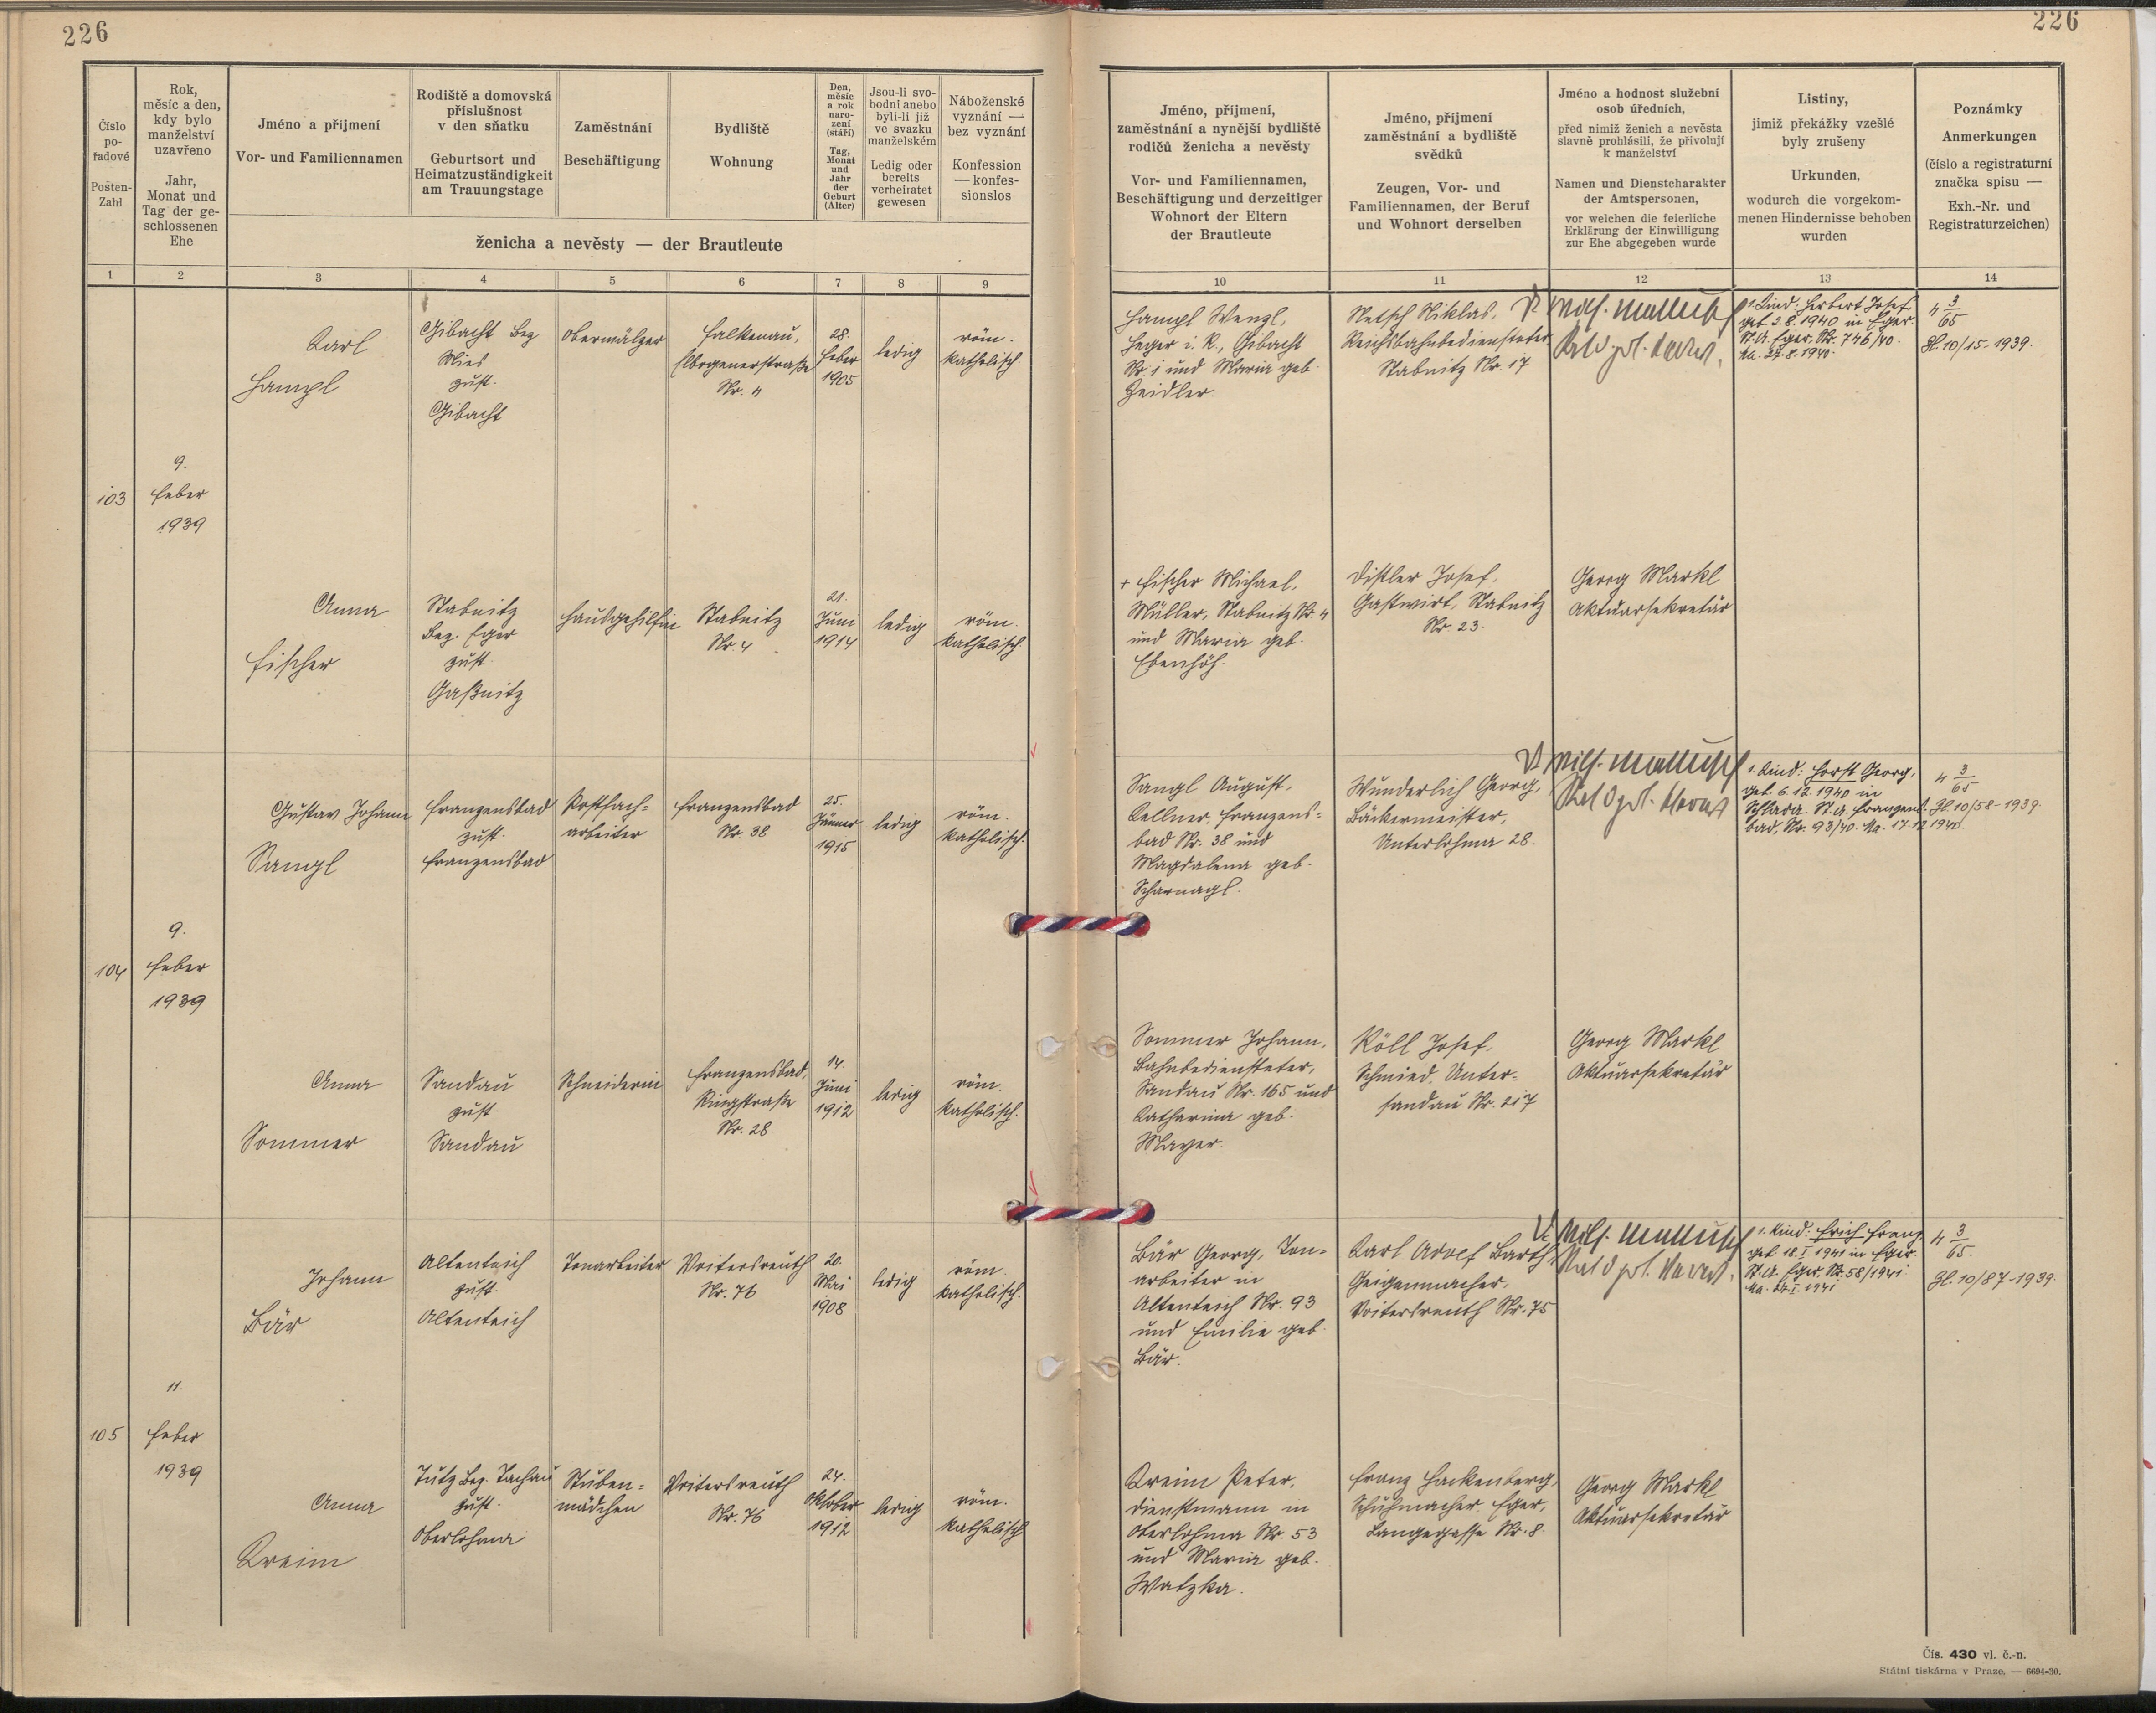 226
226
Číslo
po-
řadové
Posten-
Zahl
Rok,
měsíc a den,
kdy bylo
manželství
uzavřeno
Jahr,
Monat und
Tag der ge-
schlossenen
Ehe
Jméno a příjmení
Vor- und Familiennamen
Rodiště a domovská
příslušnost
v den sňatku
Geburtsort und
Heimatzuständigkeit
am Trauungstage
Zaměstnání
Beschäftigung
Bydliště
Wohnung
Den,
měsíc
a rok
naro-
zení
(stáří)
Tag,
Monat
und
Jahr
der
Geburt
(Alter)
Jsou-li svo-
bodni anebo
byli-li již
ve svazku
manželském
Ledig oder
bereits
verheiratet
gewesen
Náboženské
vyznání —
bez vyznání
Konfession
— konfes-
sionslos
ženicha a nevěsty — der Brautleute
Jméno, příjmení,
zaměstnání a nynější bydliště
rodičů ženicha a nevěsty
Vor- und Familiennamen,
Beschäftigung und derzeitiger
Wohnort der Eltern
der Brautleute
Jméno, příjmení
zaměstnání a bydliště
svědků
Zeugen, Vor- und
Familiennamen, der Beruf
und Wohnort derselben
Jméno a hodnost služební
osob úředních,
před nimiž ženich a nevěsta
slavně prohlásili, že přivolují
k manželství
Namen und Dienstcharakter
der Amtspersonen,
vor welchen die feierliche
Erklärung der Einwilligung
zur Ehe abgegeben wurde
Listiny,
jimiž překážky vzešlé
byly zrušeny
Urkunden,
wodurch die vorgekom-
menen Hindernisse behoben
wurden
Poznámky
Anmerkungen
(číslo a registraturní
značka spisu —
Exh.-Nr. und
Registraturzeichen)
1 2 3 4 5 6 7 8 9 10 11 12 13 14
103
9.
Feber
1939
Karl
Hampl
Gibacht Bez
Mies
zust.
Gibacht
Obermälzer
Falkenau,
Elbogenerstraße
Nr. 4
28.
Feber
1905
ledig
röm.
katholisch.
Hampl Wenzl,
Heger i. R., Gibacht
Nr. 1 und Maria geb.
Zeidler.
Netsch Niklas,
Reichsbahnbediensteter
Stabnitz Nr. 17
1. Kind: Herbert Josef
geb. 3.8.1940 in Eger.
St. A. Eger, Nr. 746/40.
Ma. 27.8.1940.
4 3/65
Gl. 10/15-1939.
Anna
Fischer
Stabnitz
Bez. Eger
zust.
Gaßnitz
Hausgehilfin
Stabnitz
Nr. 4
21.
Juni
1914
ledig
röm.
katholisch.
+ Fischer Michael,
Müller, Stabnitz Nr. 4
und Maria geb.
Ebenhöh.
Distler Josef,
Gastwirt, Stabnitz
Nr. 23.
Georg Markl
Aktuarsekretär
104
9.
Feber
1939
Gustav Johann
Sangl
Franzensbad
zust.
Franzensbad
Postfach=
arbeiter
Franzensbad
Nr. 38
25.
Jänner
1915
ledig
röm.
katholisch.
Sangl August,
Kellner, Franzens=
bad Nr. 38 und
Magdalena geb.
Scharnagl.
Wunderlich Georg,
Bäckermeister,
Unterlohma 28.
1. Kind: Horst Georg,
geb. 6.12.1940 in
Schlada. St. A. Franzens-
bad, Nr. 93/40. Ma. 17.12.1940.
4 3/65
Gl 10/58-1939.
Anna
Sommer
Sandau
zust.
Sandau
Schneiderin
Franzensbad,
Ringstraße
Nr. 28.
14.
Juni
1912
ledig
röm.
katholisch.
Sommer Johann,
Bahnbediensteter,
Sandau Nr. 165 und
Katharina geb.
Mayer.
Köll Josef,
Schmied, Unter=
sandau Nr. 217
Georg Markl
Aktuarsekretär
105
11.
Feber
1939
Johann
Bär
Altenteich
zust.
Altenteich
Tonarbeiter
Voitersreuth
Nr. 76
20.
Mai
1908
ledig
röm.
katholisch.
Bär Georg, Ton=
arbeiter in
Altenteich Nr. 93
und Emilie geb.
Bär.
Karl Adolf Barth,
Geigenmacher,
Voitersreuth Nr. 75
1. Kind: Erich Franz
geb. 18.I.1941 in Eger.
St. A. Eger, Nr. 58/1941.
Ma. 27.I.1941
4 3/65.
Gl. 10/87-1939.
Anna
Kreim
Tutz Bez. Tachau
zust.
Oberlohma
Stuben=
mädchen
Voitersreuth
Nr. 76
24.
Oktober
1912
ledig
röm.
katholisch
Kreim Peter,
Dienstmann in
Oberlohma Nr. 53
und Maria geb.
Watzka.
Franz Hackenberg,
Schuhmacher, Eger,
Langegasse Nr. 8.
Georg Markl
Aktuarsekretär
Čís. 430 vl. č.-n.
Státní tiskárna v Praze. — 6694-30.